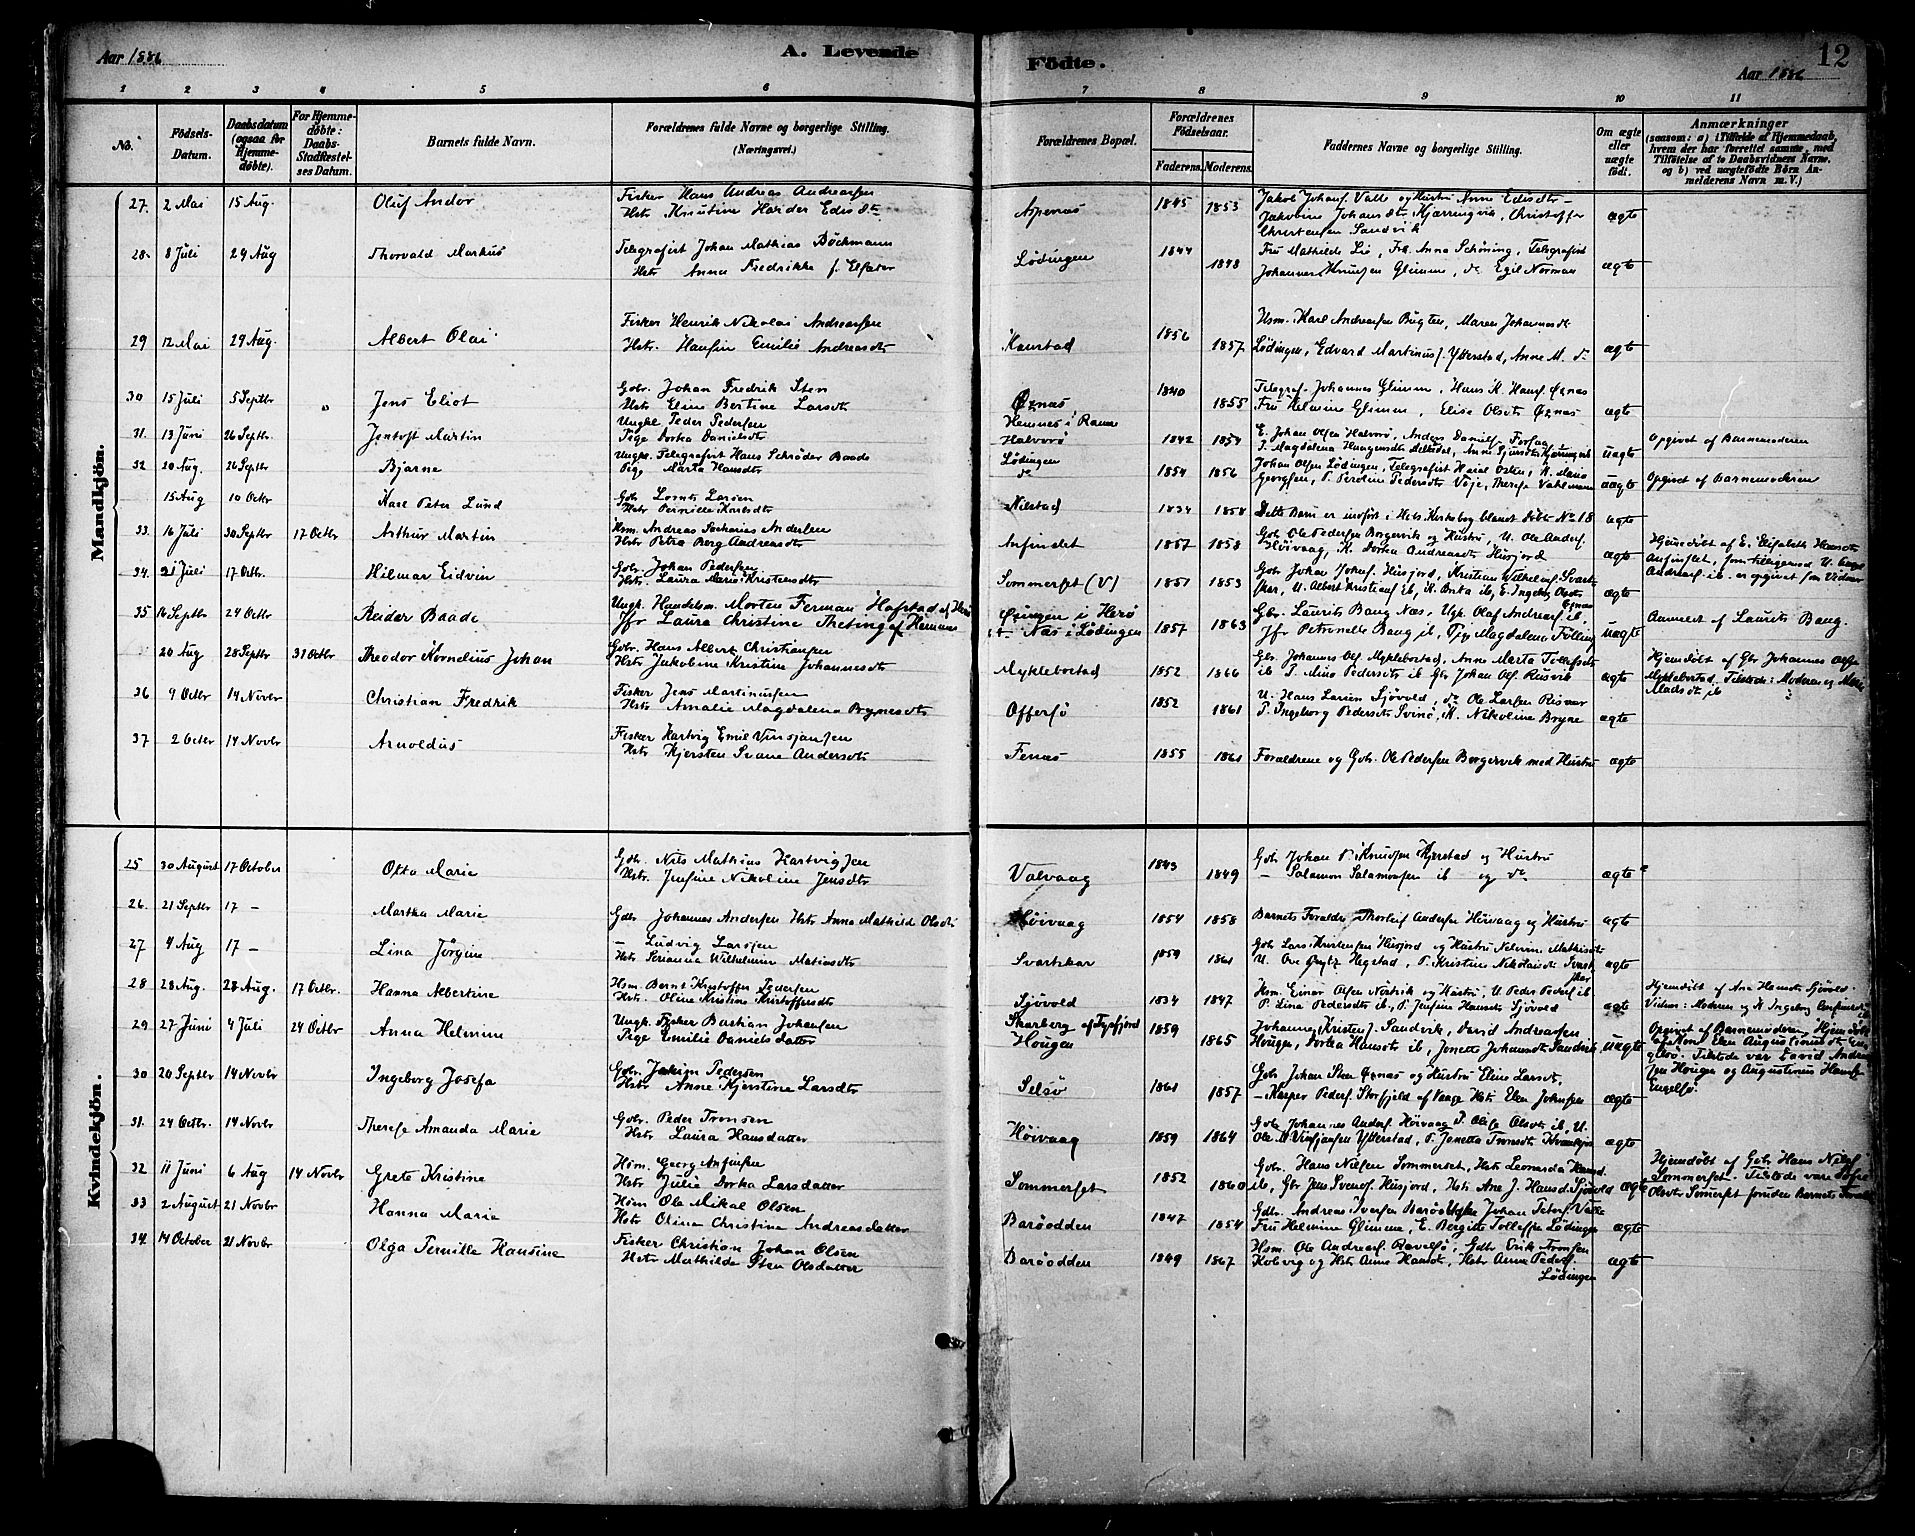 Aar 1886
A. Levende
Födte.
12
Aar 1886
1 2 3 4 5 6 7 8 9 10 11
No.
Födsels-Datum.
Daabsdatum (ogsaa for Hjemmedøbte).
For Hjemmedøbte: Daabs-Stadfæstelses Datum.
Barnets fulde Navn.
Forældrenes fulde Navne og borgerlige Stilling.
(Næringsvei.)
Forældrenes Bopæl.
Forældrenes Födselsaar.
Faderens. Moderens.
Faddernes Navne og borgerlige Stilling.
Om ægte eller uægte födt.
Anmærkninger
(saasom: a) i Tilfælde af Hjemmedaab, hvem der har forrettet samme, med Tilföielse af to Daabsvidners Navne, og b) ved uægtefödte Börn Anmelderens Navn m.V.)
Mandkjön.
27. 2 Mai 15 Aug. Oluf Andor
Fisker Hans Andreas Andreassen
Hstr Knutine Hai der Edisdtr
1845 1853
Jakob Johans. Valle og Hustru Anne Edisdtr –
Jakobine Johansdtr Kjærringvik, Christoffer
Christensen Sandvik
ægte
28. 8 Juli 29 Aug Thorvald Markus
Telegrafist Johan Mathias Böckmann
Hstr Anna Fredrikke f. Elster
Lödingen 1844 1848
Fru Mathilde Lie, Frk. Anna Schöning, Telegrafist
Johannes Knutsen Glimme, do Egil Norman
ægte
29 12 Mai 29 Aug. Albert Olai
Fisker Henrik Nikolai Andreassen
Hstr. Hansine Emilie Andreasdtr
Kanstad 1856 1857
Hsm. Karl Andreassen Bugten, Maren Johannesdtr
Lödingen, Edvard Martinus. Ytterstad, Anne M. do
ægte
30 15 Juli 5 Septbr " Jens Eliot
Gbr. Johan Fredrik Sten
Hstr Eline Bertine Larsdtr
Øxnæs 1840 1855
Telegraf. Johannes Glimme, Hans K. Hans. Øxnæs
Fru Helmine Glimme, Elise Olsdtr Øxnæs
ægte
31. 13 Juni 26 Septbr. Jentoft Martin
Ungkl Peder Pedersen
Pige Dorka Danielsdtr
Hemnes i Ranen
Halvarö 1842 1854
E. Johan Olsen Halvarö, Anders Daniels. Forsaa
uægte
Opgivet af Barnemoderen
32 20 Aug. 26 Septbr Bjarne
Ungk. Telegrafist Hans Schröder Baade
Pige Marta Hansdtr
Lödingen
do 1854 1856
Johan Olsen Lödingen, Telegrafist
uægte
Opgivet af Barnemoderen
15 Aug 10 Octbr Karl Peter Lund
Gbr Lornts Larsen
Hstr Pernille Karlsdtr
Nilstad 1834 1858
Dette Barn er indfört i Hols Kirkebog blandt döbte No 18
ægte
33. 16 Juli 30 Septbr 17 Octbr Arthur Martin
Hsm. Andreas Sakarias Andersen
Hstr Petra Berg Andreasdtr
Anfindset 1857 1858
Gbr Ole Pedersen Borgervik og Hustru, U. Ole Anders.
Höivaag, K. Dorka Andreasdtr Husjord
ægte
Hjemedöbt af E. Elisabeth Hansdtr
34. 21 Juli 17 Octbr. Hilmar Eidvin
Gbr. Johan Pedersen
Hstr. Laura Marie Kristensdtr
Sommerset (V) 1851 1853
Gbr Johan Johans. Husjord, Kristian Wilhelms. Svartskar,
U. Albert Kristians ib, E. Ingeborg Olsdtr
ægte
35 16 Septbr 24 Octbr Reidar Baade
Ungk. Handelsm. Morten Ferman Hofstad af Herö
Jfr Laura Christine Theting af Hemnes
Øxningen i Herö
Næs i Lödingen 1857 1863
Gbr. Laurits Baug Næs, Ugk. Olaf Andreas. ib,
Jfr Petronelle Baug ib,
uægte
Anmeldt af Laurits Baug.
20 Aug 28 Septbr 31 Octbr Theodor Kornelius Johan
Gbr. Hans Albert Christiansen
Hstr Jakobine Kristine Johannesdtr
Myklebostad 1852 1866
Gbr. Johannes Ols. Myklebostad, Anne Marta Tollefsdtr
ib P. Mina Pedersdtr ib Gbr Johan Ols. Rinövik
ægte
Hjemdöbt af Gbr Johannes Olsen
Myklebostad. Tilstede: Moderen og
36 9 Octbr 14 Novbr Christian Fredrik
Fisker Jens Martinussen
Hstr Amalie Magdalena Brynesdtr
Offersö 1852 1861
U. Hans Larsen Sjövold, do Ole Larsen Risvær
P. Ingeborg Pedersdtr Svinö, K. Nikoline Bryne
ægte
37 2 Octbr 14 Novbr Arnoldus
Fisker Hartvig Emil Vinsjansen
Hstr Kjersten Svane Andersdtr
Fenæs 1855 1861
Forældrene og Gbr. Ole Pedersen Borgervik med Hustru
ægte
Kvindekjön.
25 30 August 17 October Otta Marie
Gbr. Nils Mathias Hartvigsen
Hstr. Jensine Nikoline Jensdtr
Valvaag 1843 1849
Gbr Johan P. Knudsen Kjerstad og Hustru
– Salamon Salamonsen ib og do
ægte
26. 21 Septbr 17 – Martha Marie
Gbr Johannes Andersen Hstr Anna Mathilde Olsdtr
Höivaag 1854 1858
Barnets Foraldre, Thorleif Andersen Höivaag og Hustru
ægte
27 4 Aug 17 – Lina Jörgine
– Ludvig Larssen
Hstr Serianna Wilhelmine Matiasdtr
Svartskar 1859 1861
Gbr Lars Kristensen Husjord og Hustru
ægte
28 28 Aug. 28 Aug. 17 Octbr. Hanna Albertine
Hsm. Bernt Kristoffer Pedersen
Hstr. Oline Kristine Kristoffersdtr
Sjövold 1834 1847
Hsm. Einar Olsen og Hustru, U Peder Peders. ib
P. Lina Pedersdtr ib, P. Jensine Hansdtr Sjövold
ægte
Hjemdöbt af Ane Hansdtr Sjövold.
29 27 Juni 4 Juli 24 Octbr Anna Helmine
Ungk. Fisker Bastian Johansen
Pige Emilie Daniels datter
Skarberg af Tysfjord
Hougen 1859 1865
Johannes Kristens. Sandvik, David Andreassen
Hougen, Dorka Hansdtr ib, Jonette Johansdtr Sandvik
uægte
Opgivet af Barnemoderen, Hjemdöbt
af Kone Elen Augustinusdtr
Engelsö. Tilstede var David Andreassen
Hougen og Augustinus Hansen
Engelsö.
30 20 Septbr 14 Novbr Ingeborg Josefa
Gbr. Joakim Pedersen
Hstr Anne Kjerstine Larsdtr
Selsö 1861 1857
Gbr Johan Sten Øxnæs og Hustru Eline Larsdtr,
– Kasper Peders. Storfjeld af Vaage Hstr Elen Johnsen
ægte
31. 24 Octbr. 14 Novbr Therese Amanda Marie
Gbr. Peder Tronsen
Hstr Laura Hansdatter
Höivaag 1859 1864
Gbr. Johannes Anders. Höivaag P. Oline Olsdtr ib, U.
Ole M Vinsjansen Ytterstad, P. Jonetta Tronsdtr
ægte
32 11 Juni 6 Aug 14 Novbr Grete Kristine
Hsm. Georg Anfinsen
Hstr Julia Dorka Larsdatter
Sommerset 1852 1860
Gbr. Hans Nielsen Sommerset, Hstr Leonarda Hansd.
ib, Gbr Jens Svens. Husjord, Hstr Ane J. Hansd. Sjövold
ægte
Hjemdöbt af Gbr Hans Niels.
Sommerset. Tilstede vare
Olsdtr Somerset foruden Barnets
33 2 August 21 Novbr Hanna Maria
Hsm Ole Mikal Olsen
Hstr. Olina Christina Andreasdatter
Baröodden 1847 1854
Gbr. Andreas Iversen Barö, Johan Peters. Valle
Fru Helmine Glimme, E. Bergitte Tollefsen Lödingen
ægte
34. 14 October 21 Novbr Olga Pernille Hansine
Fisker Christian Johan Olsen
Hstr Mathilde Sten Olsdatter
Baröodden 1849 1867
Hsm. Ole Andreas. Rævelsö, Gdbr Erik Tronsen
Kobvig og Hstr Anne Hansdtr, Hstr Anne Peders.
Lödingen
ægte